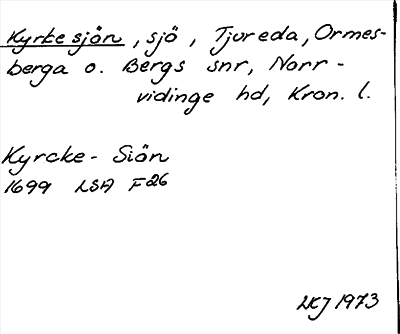 Kyrkesjön, sjö, Tjureda, Ormes-
berga o. Bergs snr, Norr-
vidinge hd, Kron. l.
Kyrcke-Siön
1699 LSA F26
LKJ 1973